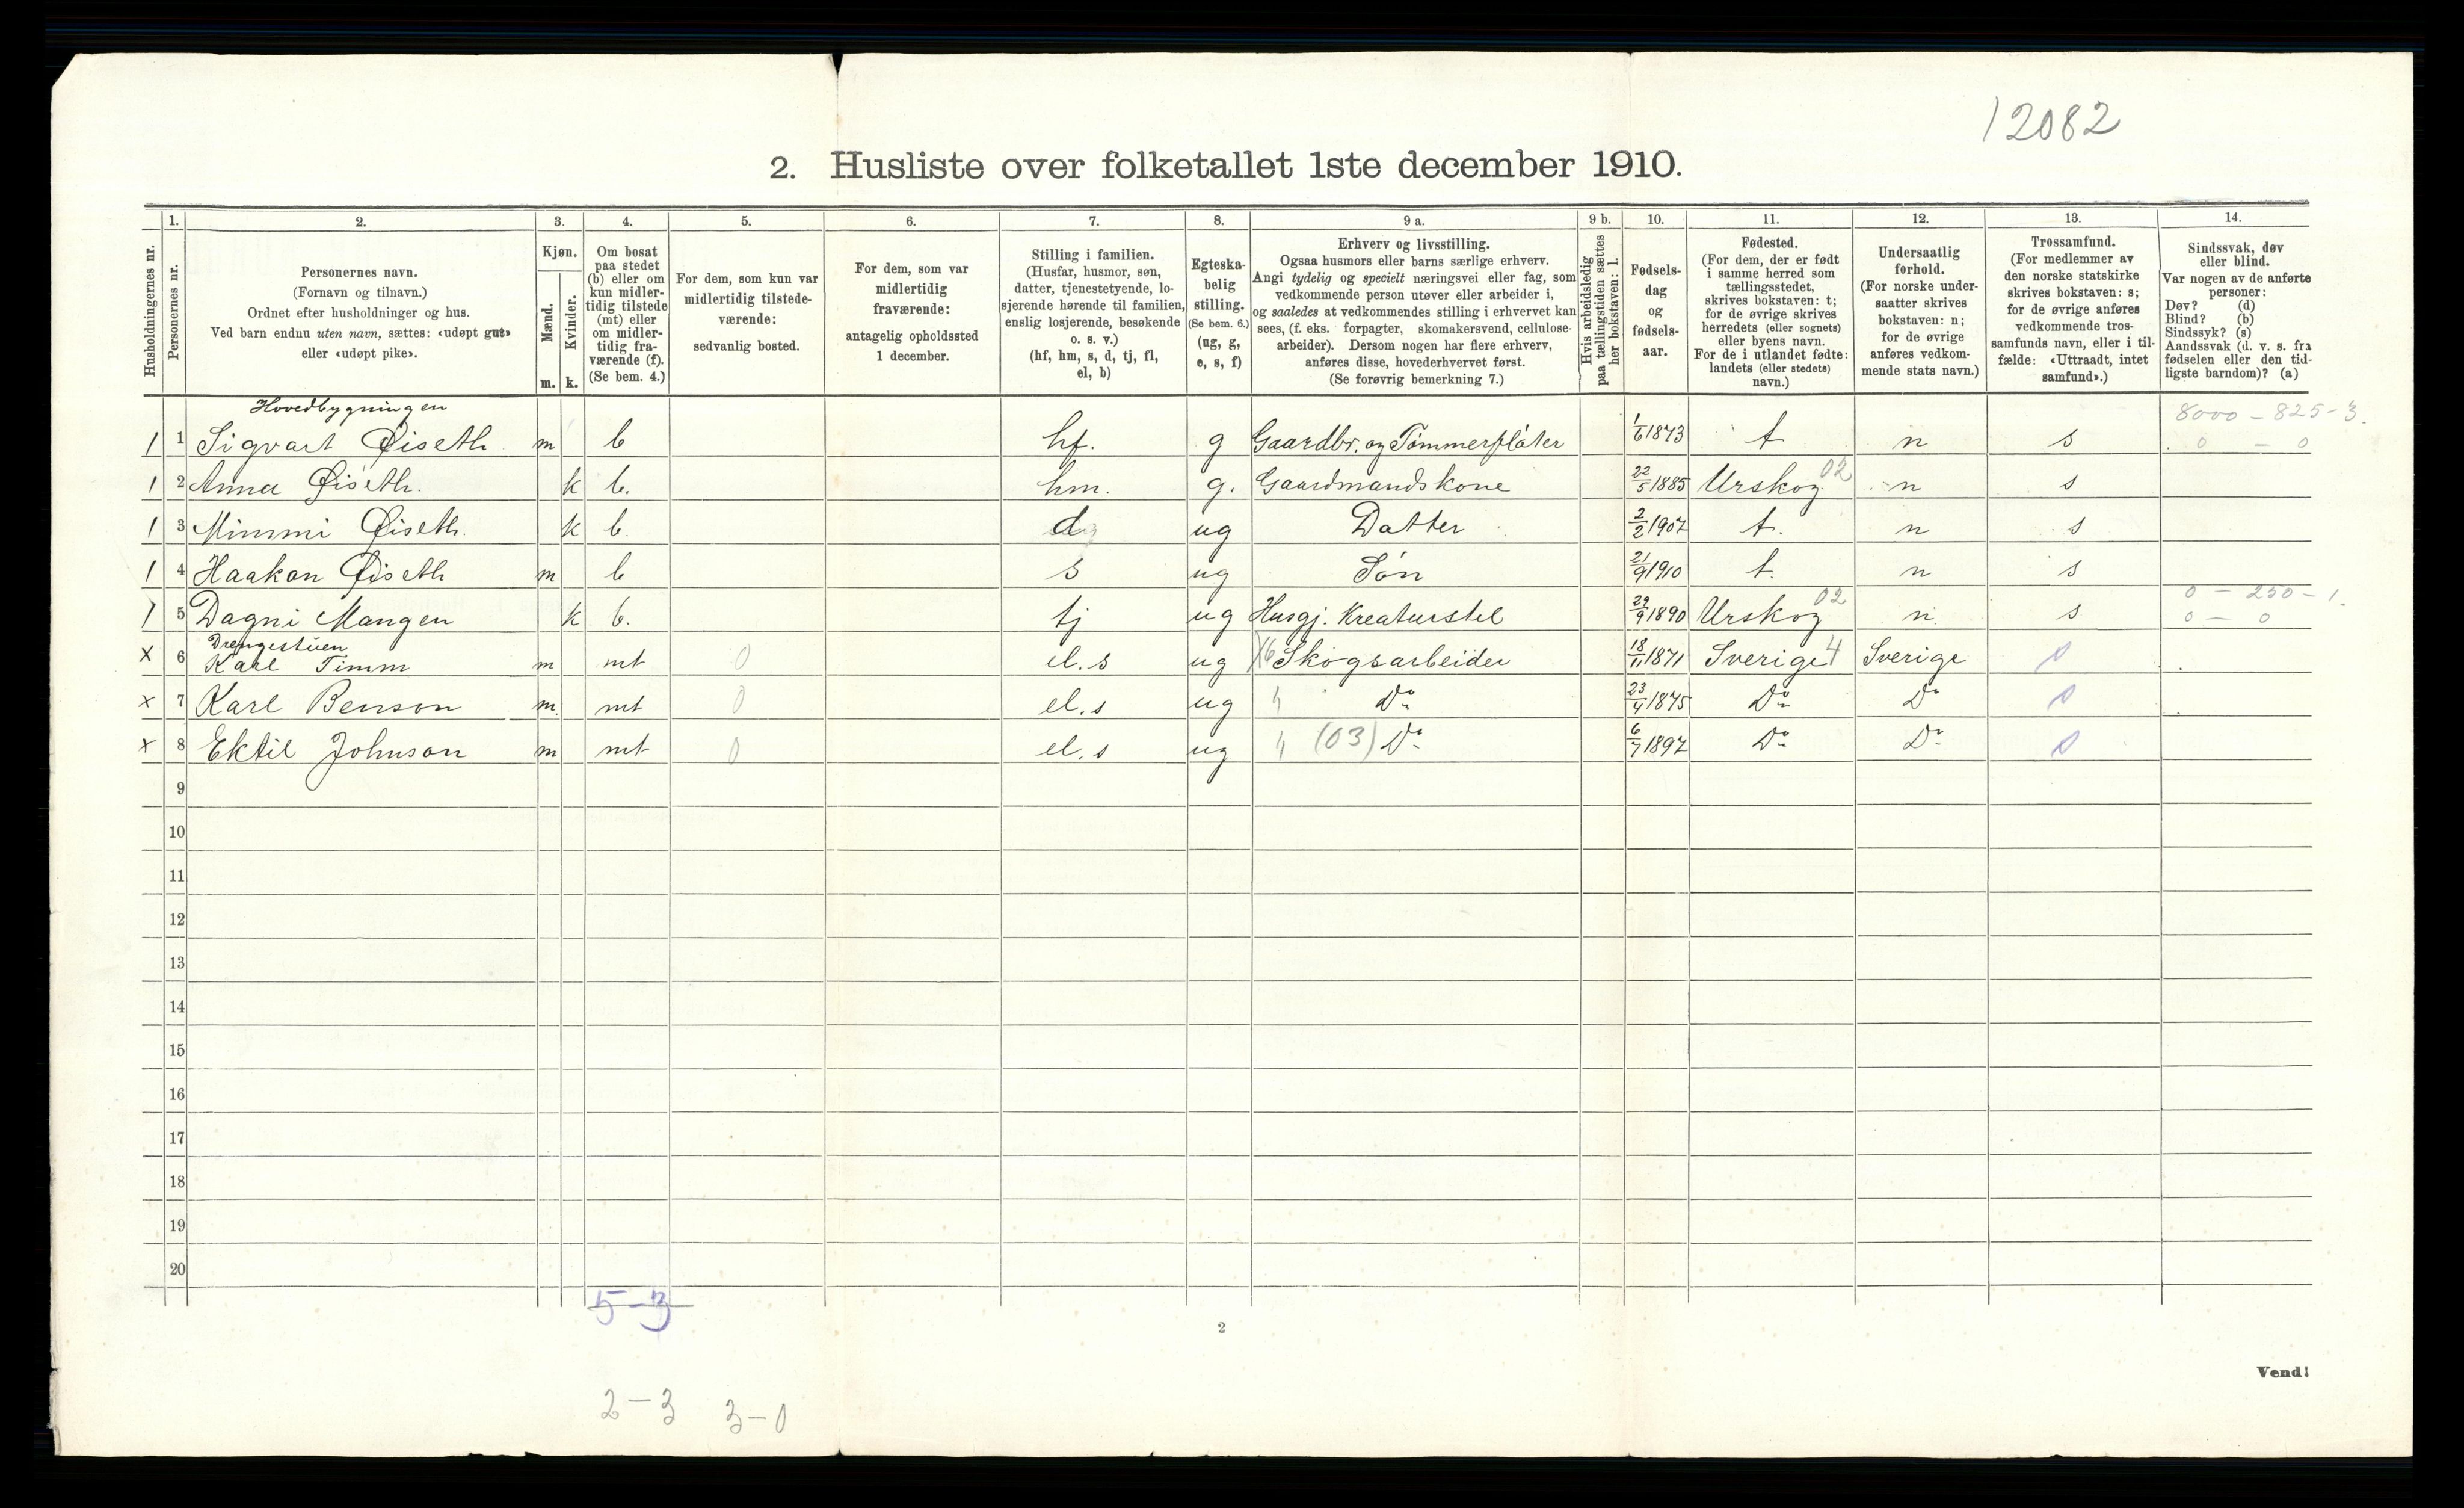 12082
2. Husliste over folketallet 1ste december 1910.
Husholdningernes nr.
1.
Personernes nr.
2.
Personernes navn.
(Fornavn og tilnavn.)
Ordnet efter husholdninger og hus.
Ved barn endnu uten navn, sættes: «udøpt gut»
eller «udøpt pike».
3.
Kjøn.
Mænd.
Kvinder.
m. k.
4.
Om bosat
paa stedet
(b) eller om
kun midler-
tidig tilstede
(mt) eller
om midler-
tidig fra-
værende (f).
(Se bem. 4.)
5.
For dem, som kun var
midlertidig tilstede-
værende:
sedvanlig bosted.
6.
For dem, som var
midlertidig
fraværende:
antagelig opholdssted
1 december.
7.
Stilling i familien.
(Husfar, husmor, søn,
datter, tjenestetyende, lo-
sjerende hørende til familien,
enslig losjerende, besøkende
o. s. v.)
(hf, hm, s, d, tj, fl,
el, b)
8.
Egteska-
belig
stilling.
(Se bem. 6.)
(ug, g,
e, s, f)
9 a.
Erhverv og livsstilling.
Ogsaa husmors eller barns særlige erhverv.
Angi tydelig og specielt næringsvei eller fag, som
vedkommende person utøver eller arbeider i,
og saaledes at vedkommendes stilling i erhvervet kan
sees, (f. eks. forpagter, skomakersvend, cellulose-
arbeider). Dersom nogen har flere erhverv,
anføres disse, hovederhvervet først.
(Se forøvrig bemerkning 7.)
9 b.
Hvis arbeidsledig
paa tællingstiden sættes
her bokstaven: l.
10.
Fødsels-
dag
og
fødsels-
aar.
11.
Fødested.
(For dem, der er født
i samme herred som
tællingsstedet,
skrives bokstaven: t;
for de øvrige skrives
herredets (eller sognets)
eller byens navn.
For de i utlandet fødte:
landets (eller stedets)
navn.)
12.
Undersaatlig
forhold.
(For norske under-
saatter skrives
bokstaven: n;
for de øvrige
anføres vedkom-
mende stats navn.)
13.
Trossamfund.
(For medlemmer av
den norske statskirke
skrives bokstaven: s;
for de øvrige anføres
vedkommende tros-
samfunds navn, eller i til-
fælde: «Uttraadt, intet
samfund».)
14.
Sindssvak, døv
eller blind.
Var nogen av de anførte
personer:
Døv? (d)
Blind? (b)
Sindssyk? (s)
Aandssvak (d. v. s. fra
fødselen eller den tid-
ligste barndom)? (a)
Hovedbygningen 8000 - 825 - 3.
1 1 Sigvart Øiseth m b hf. g Gaardbr. og Tømmerfløter 1/6 1873 t n s 0 - 0
1 2 Anna Øiseth. k b. hm. g. Gaardmandskone 22/5 1885 Urskog 02 n s
1 3 Mimmi Øiseth. k b. d ug Datter 2/2 1907 t. n s
1 4 Haakon Øiseth m b s ug Søn 21/9 1910 t. n s
0 - 250 - 1.
1 5 Dagni Mangen k b. tj ug Husgj. Kreaturstel 29/9 1890 Urskog 02 n s 0 - 0
Drengestuen
x 6 Karl Timm m mt 0 el. s ug Skogsarbeider 18/11 1871 Sverige 4 Sverige
x 7 Karl Benson m. mt 0 el. s ug " Do 23/4 1875 Do Do
x 8 Ektil Johnson m mt 0 el. s ug " (03) Do 6/7 1897 Do Do
9
10
11
12
13
14
15
16
17
18
19
20
5-3
2
Vend!
2-3 3-0